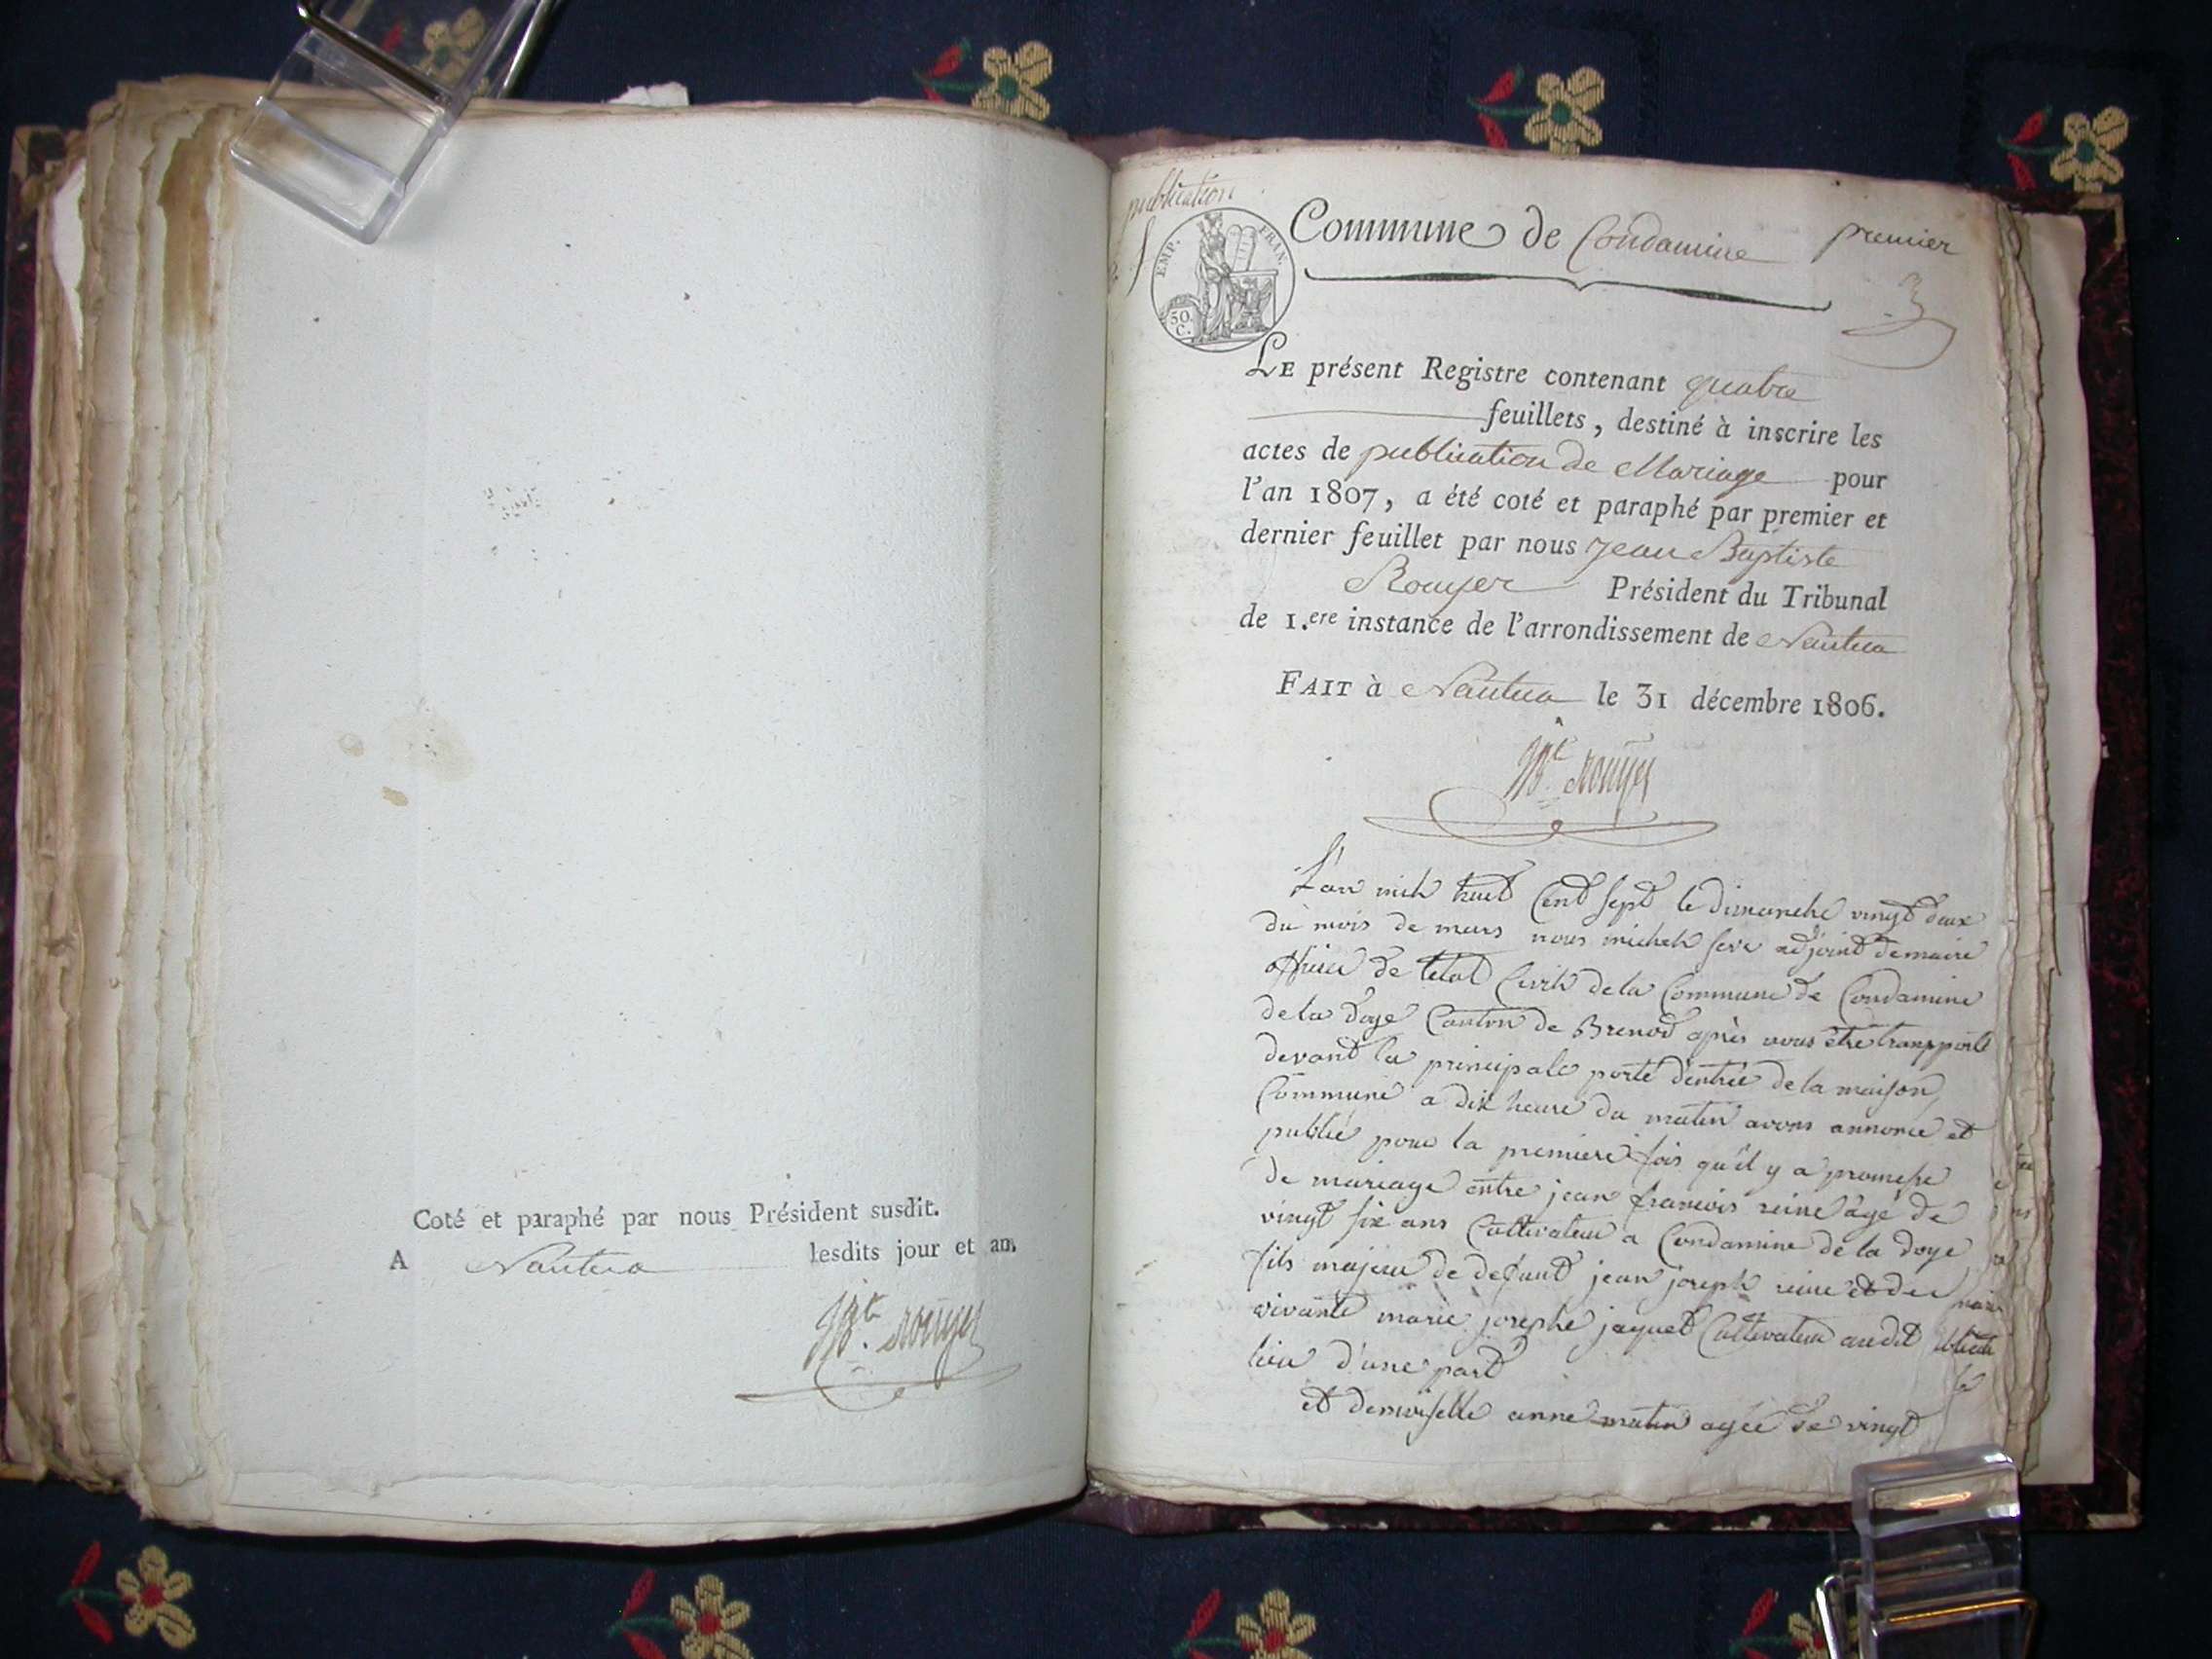 Coté et paraphé par nous Président susdit.
A Nantua lesdits jour et an.
JBte. Rouyer
publication
EMP. FRAN.
50. C.
Commune de Condamine premier
LE présent Registre contenant quatre
feuillets, destiné à inscrire les
actes de publication de Mariage pour
l'an 1807, a été coté et paraphé par premier et
dernier feuillet par nous Jean Baptiste
Rouyer Président du Tribunal
de 1.ere instance de l'arrondissement de Nantua
FAIT à Nantua le 31 décembre 1806.
JBte. Rouyer
L'an mil huit Cent Sept le dimanche vingt deux
du mois de mars nous michel seve adjoint demaire
officier de letat Civil dela Commune de Condamine
dela doye Canton de Brenod après nous être transporté
devant la principale porte dentrée de la maison
Commune a dix heure du matin avons annoncé et
publié pour la premiere fois qu'il y a promesse
de mariage entre jean francois reine âgé de
vingt six ans Cultivateur a Condamine de la doye
fils majeur de defunt jean joseph reine et de
vivante marie josephe jaquet Cultivateur audit
lieu d'une part
et demoiselle anne matin agée de vingt